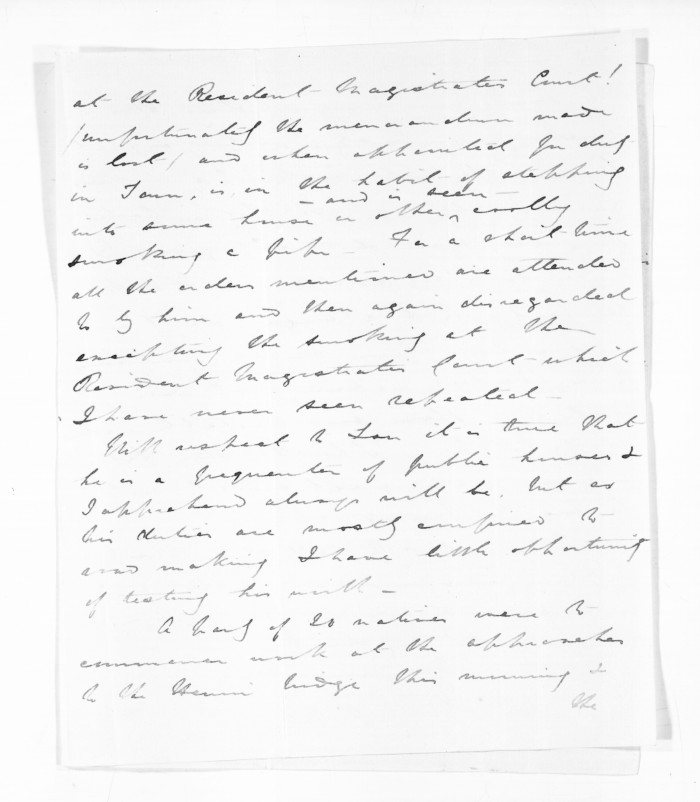 at the Resident Magistrates Court!
(unfortunately the memorandum made
is lost) and when appointed for duty
in Town, is in the habit of stepping
– and is seen –
into some house or other, coolly
smoking a pipe – For a short time
all the orders mentioned are attended
to by him and then again disregarded
excepting the smoking at the
Resident Magistrates Court which
I have never seen repeated –
With respect to it is true that
he is a frequenter of public houses &
I apprehend always will be, but as
his duties are mostly confined to
road making I have little opportunity
of testing his
A party of 20 natives were to
commence work at the approaches
to the bridge this morning &
the